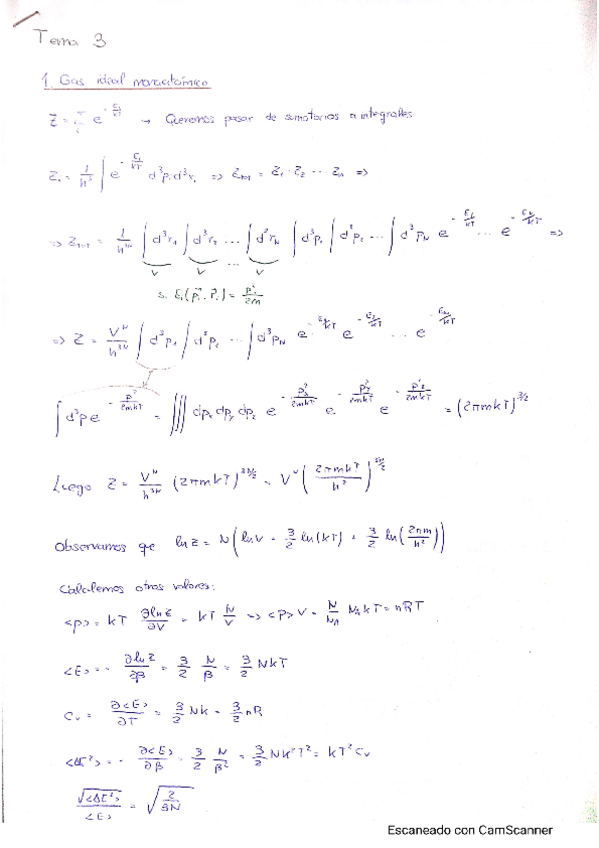 Tema 3
1. Gas ideal monoatómico
Z = Σ e^(-Ei/kT) → Queremos pasar de sumatorios a integrales
Z₁ = 1/h³ ∫ e^(-E₁/kT) d³p₁ d³r₁ => Z_tot = Z₁ · Z₂ ... Z_N =>
=> Z_tot = 1/h^(3N) ∫d³r₁ ∫d³r₂ ... ∫d³r_N ∫d³p₁ ∫d³p₂ ... ∫d³p_N e^(-E₁/kT) ... e^(-E_N/kT) =>
V V ... V
si Ei(p⃗i, r⃗i) = pi²/2m
=> Z = V^N/h^(3N) ∫d³p₁ ∫d³p₂ ... ∫d³p_N e^(-E₁/kT) e^(-E₂/kT) ... e^(-E_N/kT)
∫d³p e^(-p²/2mkT) = ∭ dpx dpy dpz e^(-px²/2mkT) e^(-py²/2mkT) e^(-pz²/2mkT) = (2πmkT)^(3/2)
Luego Z = V^N/h^(3N) (2πmkT)^(3N/2) = V^N (2πmkT/h²)^(3N/2)
Observamos que ln Z = N(ln V + 3/2 ln(kT) + 3/2 ln(2πm/h²))
Calculemos otros valores:
<p> = kT ∂lnZ/∂V = kT N/V → <p>V = N/N_A N_A kT = nRT
<E> = - ∂lnZ/∂β = 3/2 N/β = 3/2 NkT
Cv = ∂<E>/∂T = 3/2 Nk = 3/2 nR
<ΔE²> = - ∂<E>/∂β = 3/2 N/β² = 3/2 Nk²T² = kT²Cv
√<ΔE²>/<E> = √(2/3N)
Escaneado con CamScanner